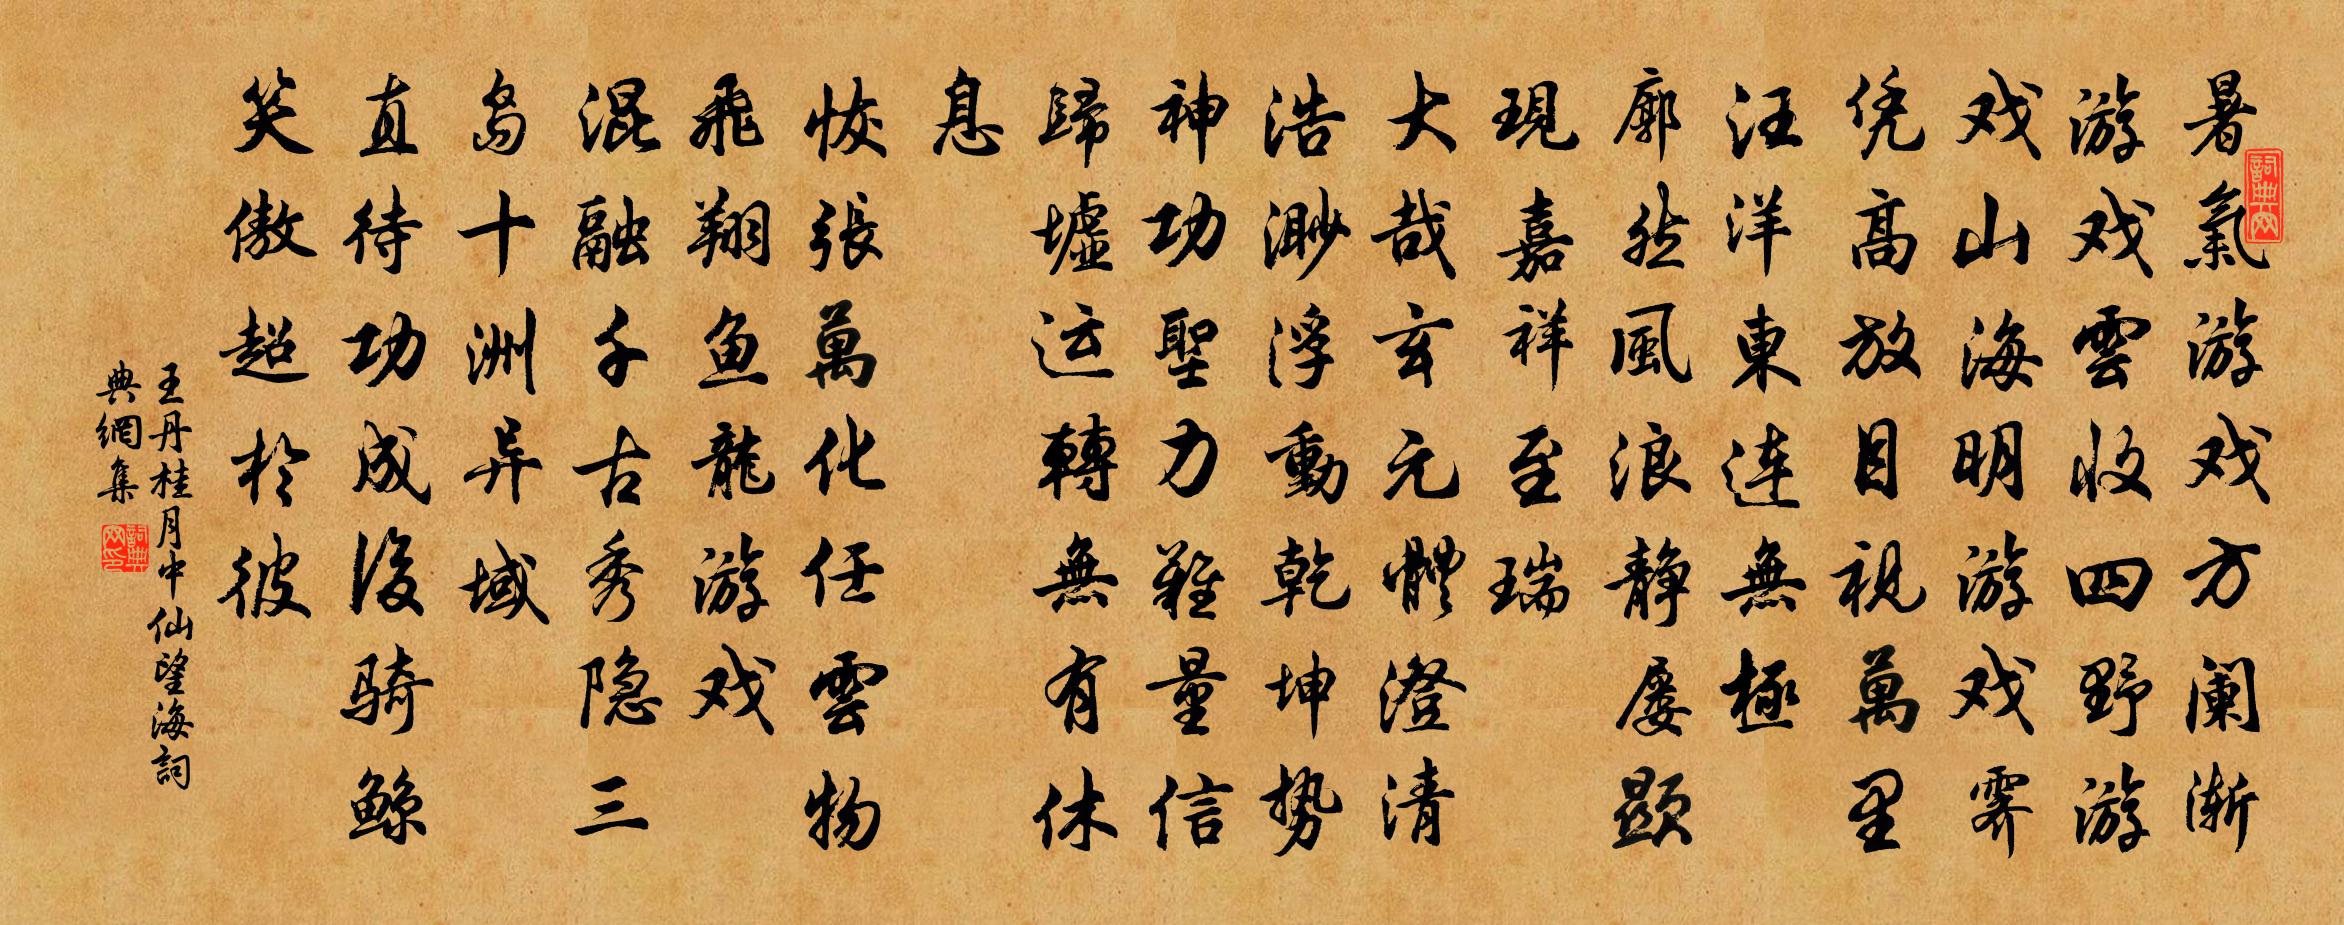 暑氣游戏方阑渐
游戏雲收四野游
戏山海明游戏霁
凭高放目視萬里
汪洋東连無極
廓然風浪静屡顯
現嘉祥至瑞
大哉玄元體澄清
浩渺浮動乾坤势
神功聖力難量信
歸墟运轉無有休
息
恢張萬化任雲物
飛翔魚龍游戏
混融千古秀隐三
島十洲异域
直待功成後骑鲸
笑傲超於彼
王丹桂月中仙望海詞
典網集
詞典网
詞典网印